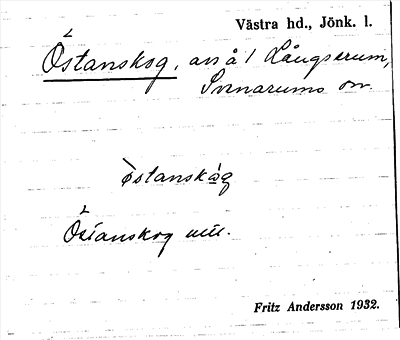 Västra hd., Jönk. l.
Östanskog, avs å 1 Långserum,
Svenarums sn.
östanskåg
Östanskog mtl.
Fritz Andersson 1932.